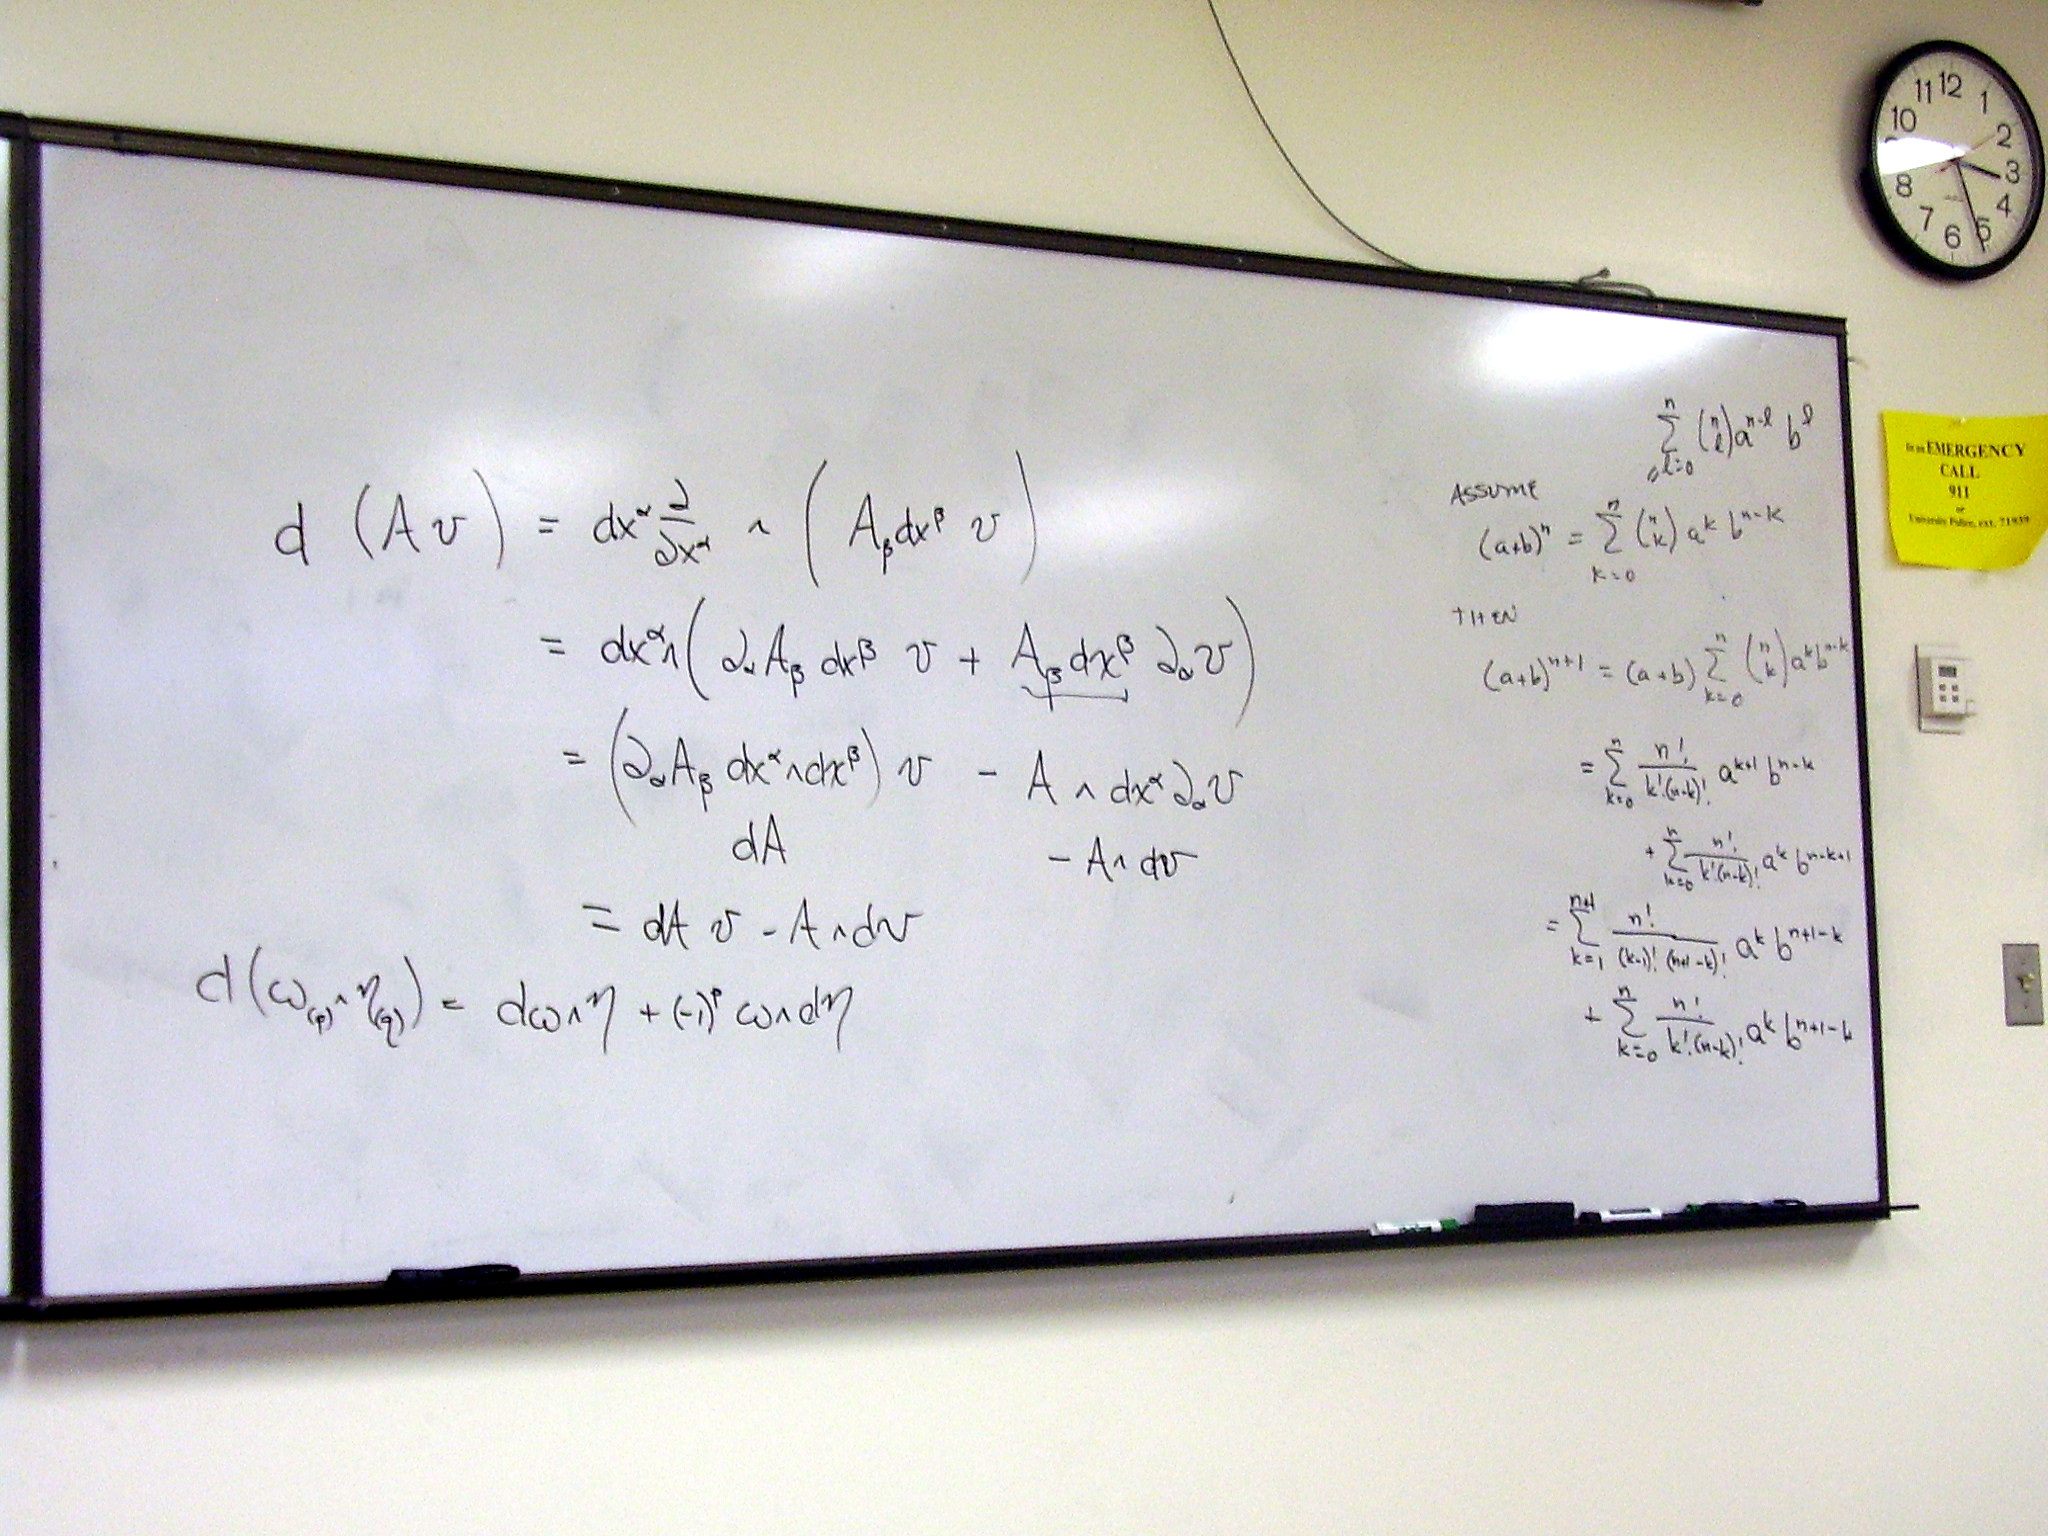 d (A v) = dx^α ∂/∂x^α ∧ ( A_β dx^β v )
= dx^α ∧ ( ∂_α A_β dx^β v + A_β dx^β ∂_α v )
= ( ∂_α A_β dx^α ∧ dx^β ) v - A ∧ dx^α ∂_α v
dA - A ∧ dv
= dA v - A ∧ dv
d ( ω_(p) ∧ η_(q) ) = dω ∧ η + (-1)^p ω ∧ dη
∑_{l=0}^{n} (n l) a^{n-l} b^l
ASSUME
(a+b)^n = ∑_{k=0}^{n} (n k) a^k b^{n-k}
THEN
(a+b)^{n+1} = (a+b) ∑_{k=0}^{n} (n k) a^k b^{n-k}
= ∑_{k=0}^{n} n!/(k!(n-k)!) a^{k+1} b^{n-k}
+ ∑_{k=0}^{n} n!/(k!(n-k)!) a^k b^{n-k+1}
= ∑_{k=1}^{n+1} n!/((k-1)!(n+1-k)!) a^k b^{n+1-k}
+ ∑_{k=0}^{n} n!/(k!(n-k)!) a^k b^{n+1-k}
11 12 1
10 2
3
8 4
7 6 5
In an EMERGENCY
CALL
911
or
University Police, ext.